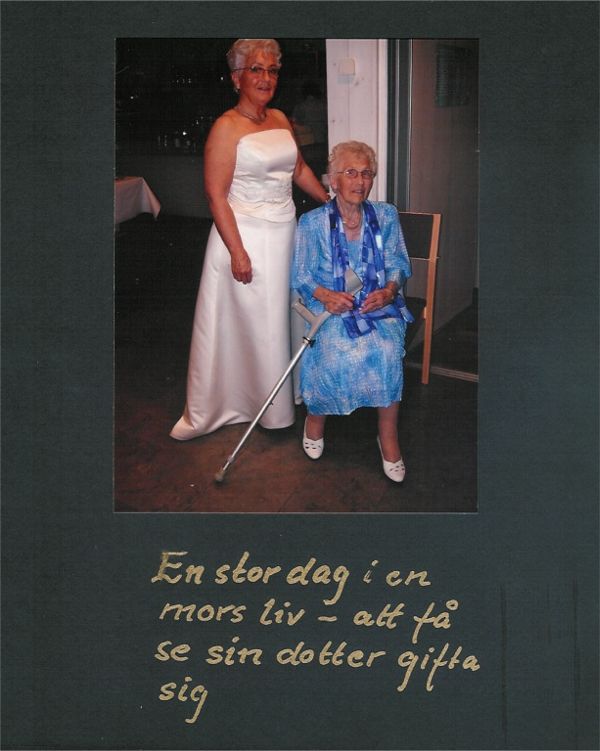 En stor dag i en
mors liv – att få
se sin dotter gifta
sig